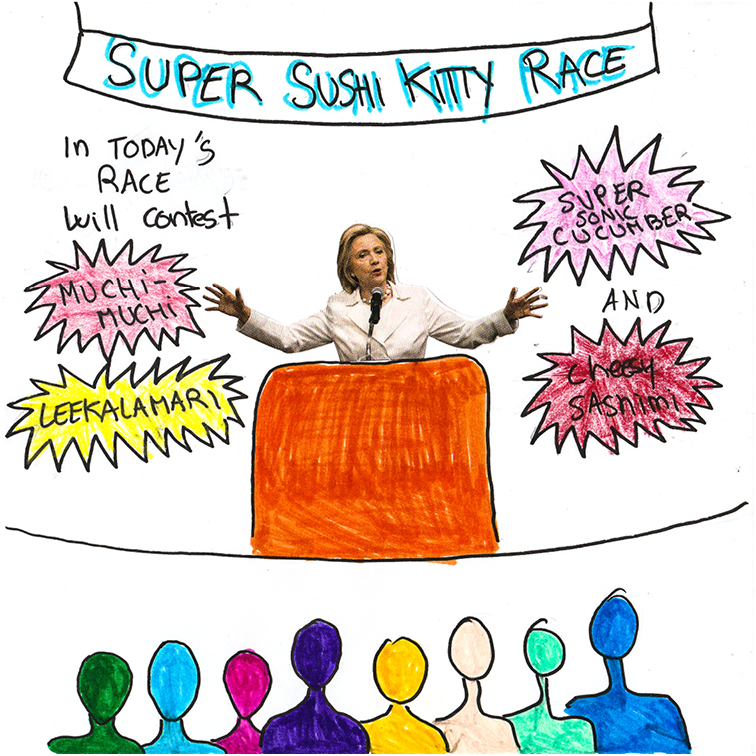 SUPER SUSHI KITTY RACE
In TODAY'S
RACE
will contest
MUCHI-
MUCHI
LEEKALAMARI
SUPER
SONIC
CUCUMBER
AND
Cheesy
SASHIMI